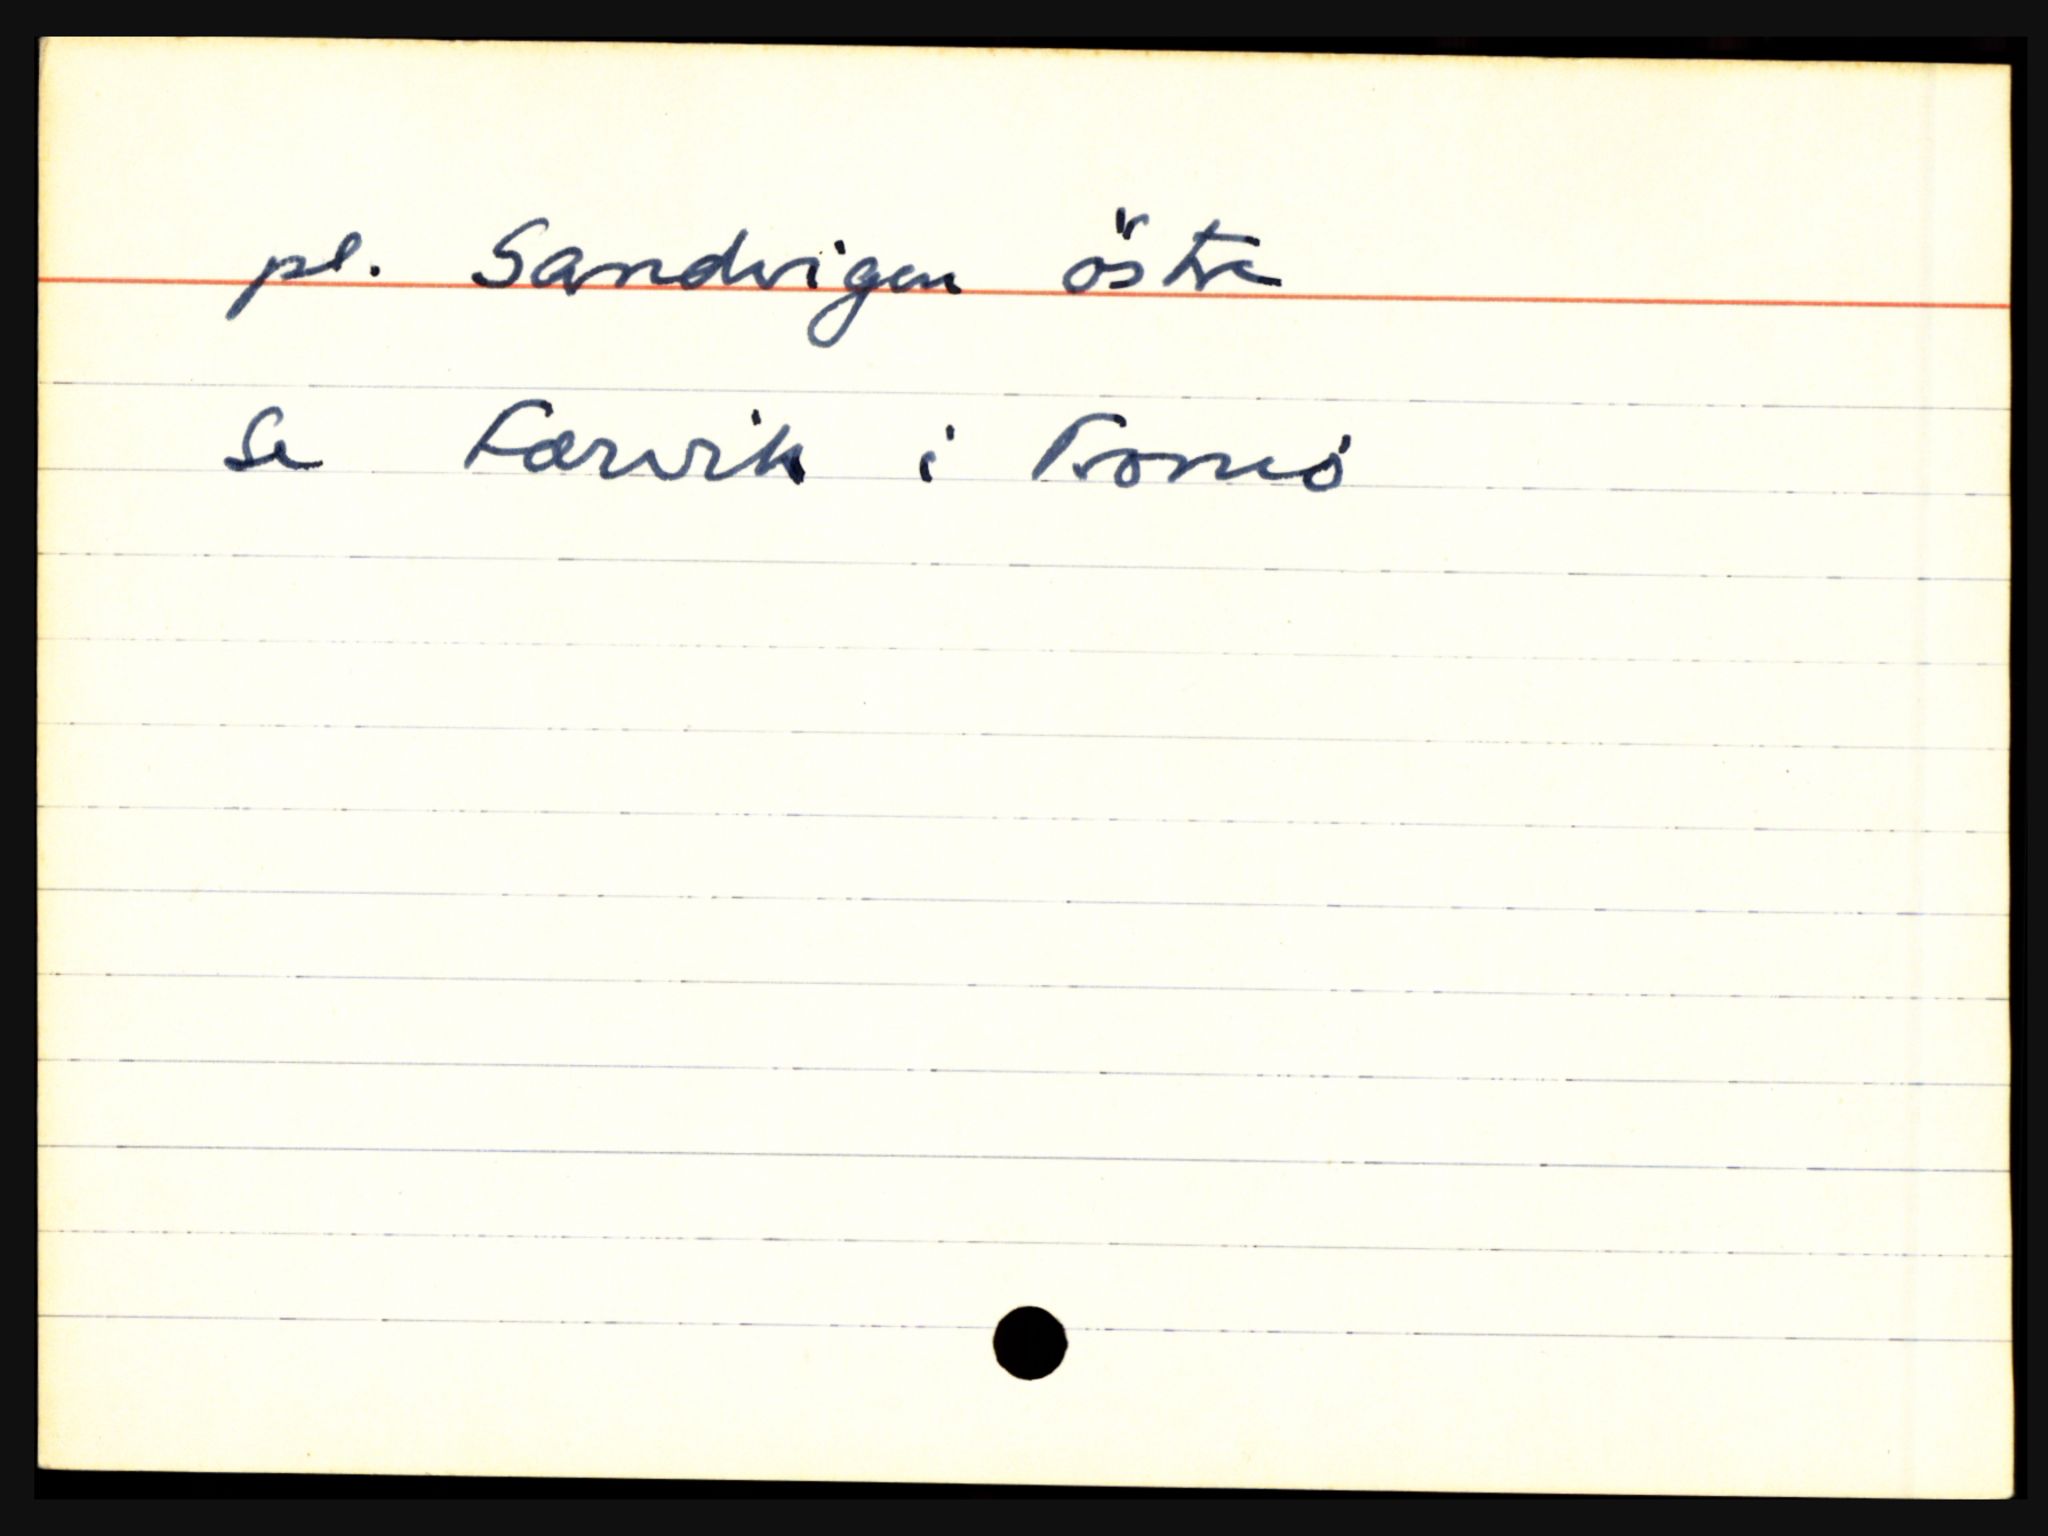 pl. Sandvigen östre
Se Færvik i Tromø